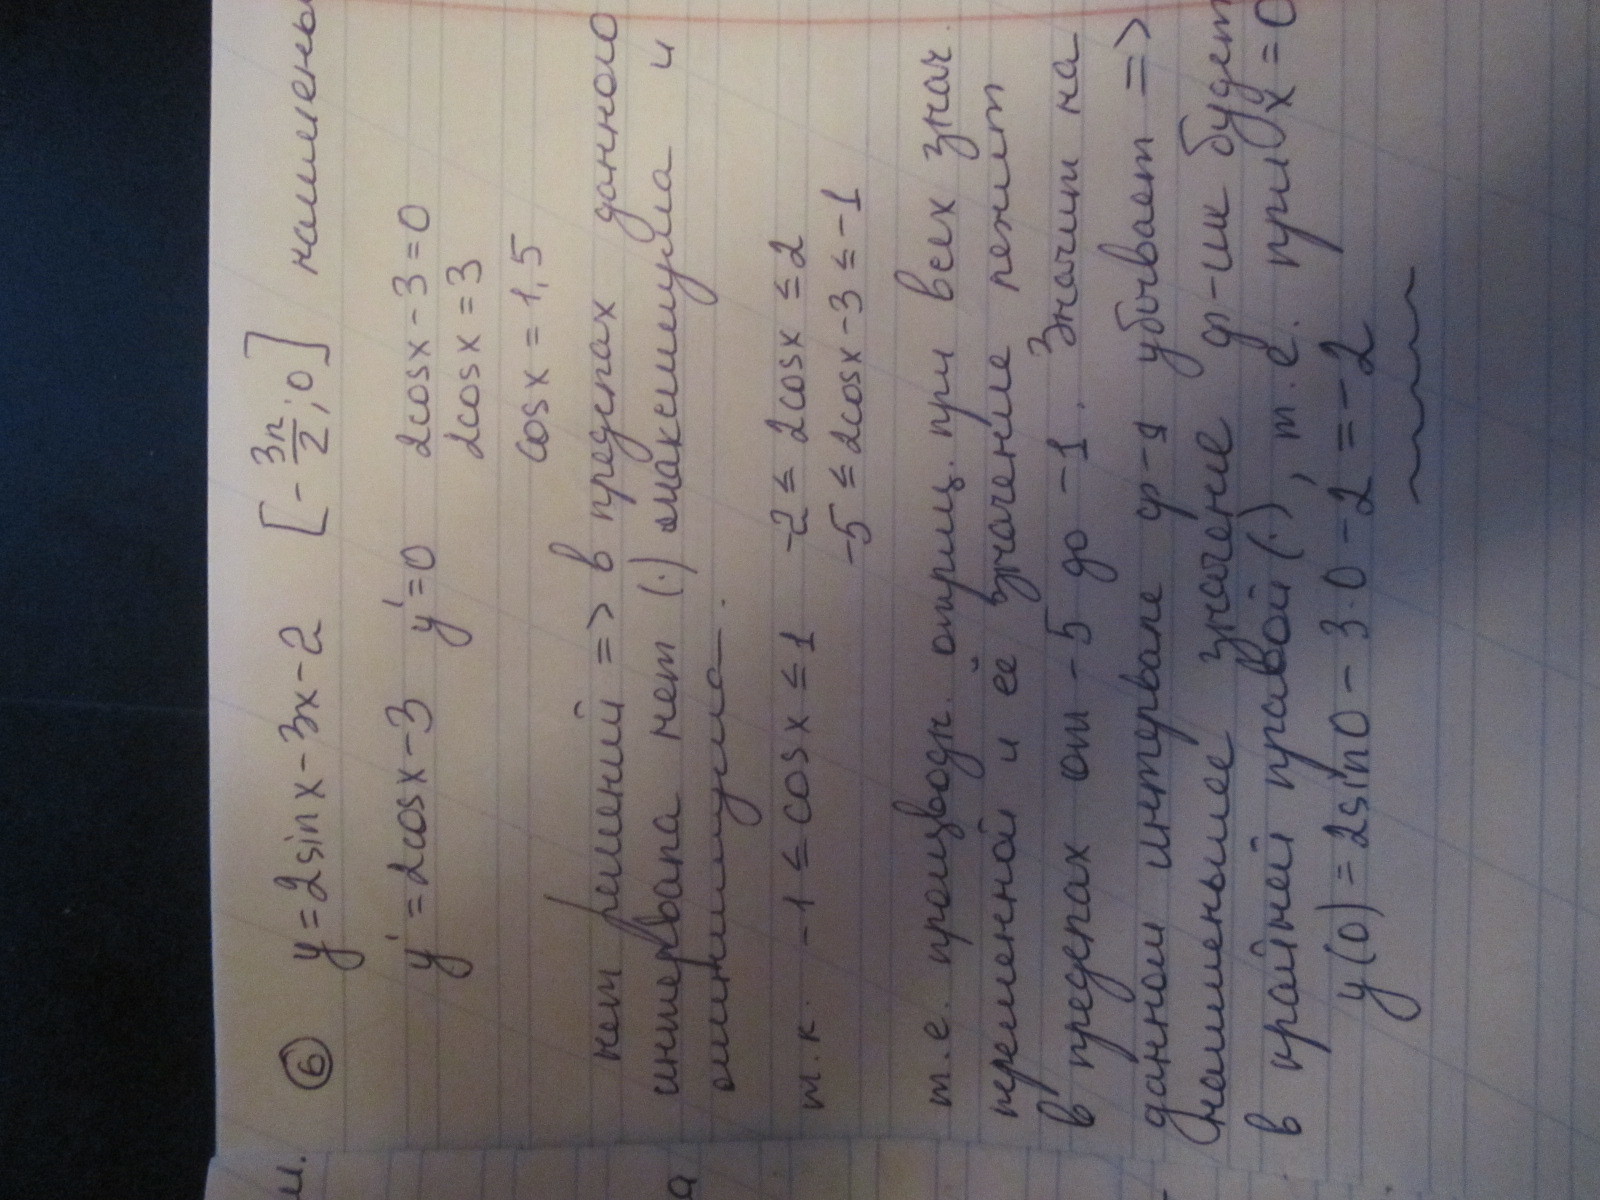 ⑥ y = 2sinx − 3x − 2 [−3π/2; 0] наименьш
y' = 2cosx − 3 y' = 0 2cosx − 3 = 0
2cosx = 3
cosx = 1,5
нет решений => в пределах данного
интервала нет (·) максимума и
минимума.
т.к. −1 ≤ cosx ≤ 1 −2 ≤ 2cosx ≤ 2
−5 ≤ 2cosx − 3 ≤ −1
т.е. производн. отриц. при всех знач.
переменной и её значение лежит
в пределах от −5 до −1. Значит на
данном интервале ф-я убывает =>
наименьшее значение ф-ии будет
в крайней правой (·), т.е. при x = 0
y(0) = 2sin0 − 3·0 − 2 = −2
и.
а